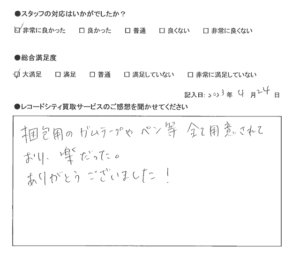 ●スタッフの対応はいかがでしたか？
☑非常に良かった □良かった □普通 □良くない □非常に良くない
●総合満足度
☑大満足 □満足 □普通 □満足していない □非常に満足していない
記入日:2023年4月24日
●レコードシティ買取サービスのご感想を聞かせてください
梱包用のガムテープやペン等 全て用意されて
おり、楽だった。
ありがとうございました！